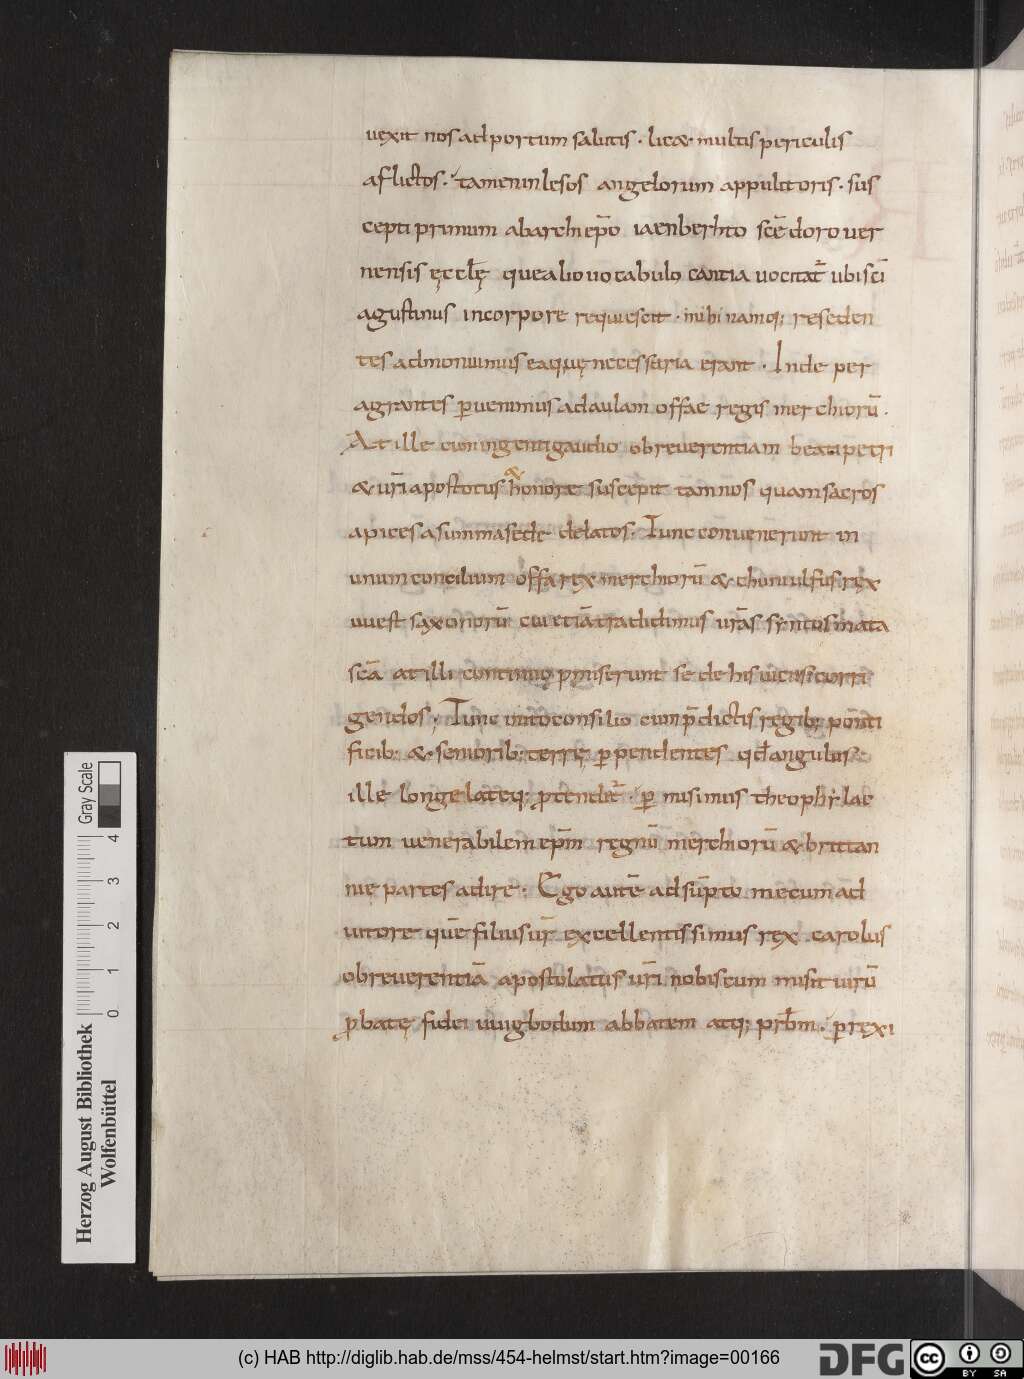 uexit nos ad portum salutis · lic& multis periculis
aflictos · tamen inlesos angelorum appulit oris · sus
cepti primum ab archiepo iaenberhto scē doro uer
nensis ęcclę que alio uocabulo cantia uocitat̄ ubi sc̄i
agustinus in corpore requiescit · inibi namq; reseden
tes admonuimus ea quę necessaria erant · Inde per
agrantes puenimus ad aulam offae regis merchiorū ·
At ille cum ingenti gaudio ob reuerentiam beati petri
& ur̄i apostolatus & honore suscepit tam nos quam sacros
apices a summa sede delatos · Tunc conuenerunt in
unum concilium offa rex merchiorū & chuniulfus rex
uuest saxonorū cui etiā tradidimus ur̄as syntusmata
scā at illi continuo pmiserunt se de his uiciis corri
gendos · Tunc inito consilio cum p̄dictis regib; ponti
ficib; & seniorib; terrę ppendentes qđ angulus
ille longe lateq; ptendit̄ · p misimus theophylac
tum uenerabilem ep̄m regnū merchiorū & brittan
nie partes adire · Ego autē adsūpto mecum ad
iutore quē filius ur̄ excellentissimus rex carolus
ob reuerentiā apostolatus ur̄i nobiscum misit uirū
pbatę fidei uuigbodum abbatem atq; prb̄m · prexi
Gray Scale
4
3
2
1
0
Herzog August Bibliothek
Wolfenbüttel
(c) HAB http://diglib.hab.de/mss/454-helmst/start.htm?image=00166
DFG
cc
BY SA